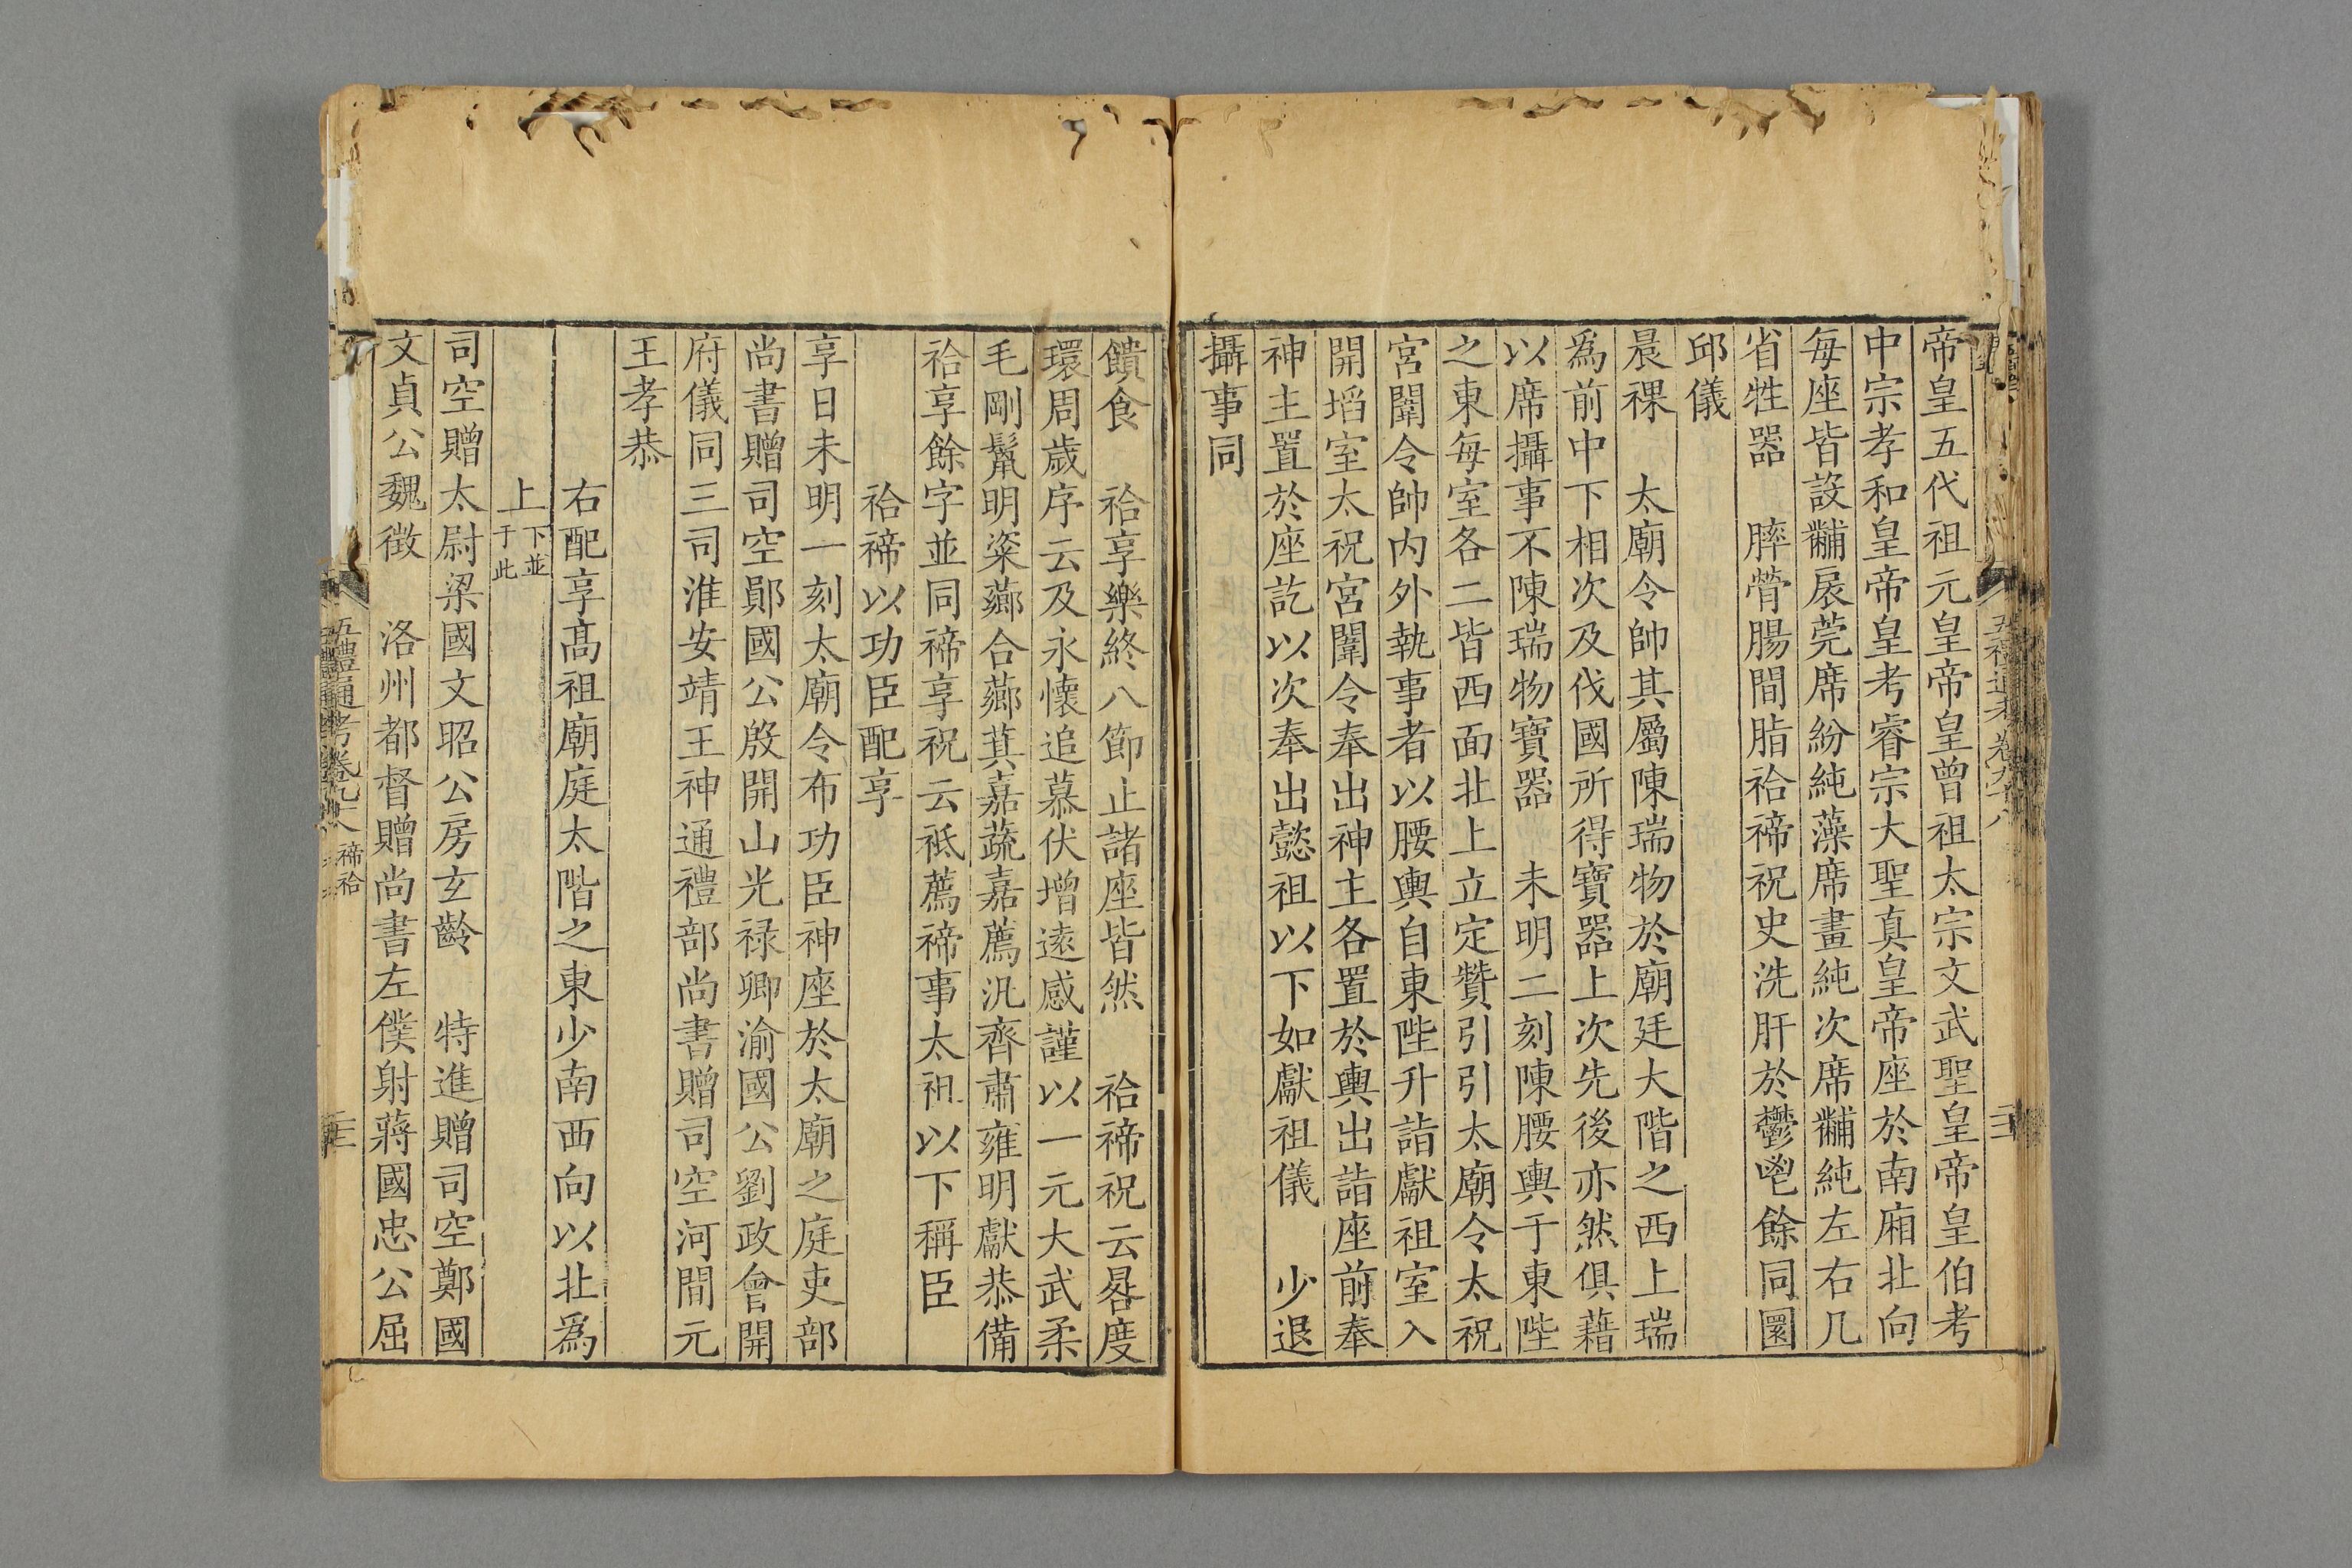 帝皇五代祖元皇帝皇曾祖太宗文武聖皇帝皇伯考
中宗孝和皇帝皇考睿宗大聖真皇帝座於南廂北向
每座皆設黼扆莞席紛純藻席畫純次席黼純左右几
省牲器　膟膋腸間脂祫禘祝史洗肝於鬱鬯餘同圜
邱儀
晨祼　太廟令帥其屬陳瑞物於廟廷大階之西上瑞
爲前中下相次及伐國所得寶器上次先後亦然俱藉
以席攝事不陳瑞物寶器　未明二刻陳腰輿于東陛
之東每室各二皆西面北上立定贊引引太廟令太祝
宮闈令帥内外執事者以腰輿自東陛升詣獻祖室入
開埳室太祝宮闈令奉出神主各置於輿出詣座前奉
神主置於座訖以次奉出懿祖以下如獻祖儀　少退
攝事同
饋食　祫享樂終八節止諸座皆然　祫禘祝云晷度
環周歲序云及永懷追慕伏增遠感謹以一元大武柔
毛剛鬣明粢薌合薌萁嘉蔬嘉薦汎齊肅雍明獻恭備
祫享餘字並同禘享祝云祗薦禘事太祖以下稱臣
祫禘以功臣配享
享日未明一刻太廟令布功臣神座於太廟之庭吏部
尚書贈司空鄖國公殷開山光禄卿渝國公劉政會開
府儀同三司淮安靖王神通禮部尚書贈司空河間元
王孝恭
右配享高祖廟庭太階之東少南西向以北爲
上下並于此
司空贈太尉梁國文昭公房玄齡　特進贈司空鄭國
文貞公魏徴　洛州都督贈尚書左僕射蔣國忠公屈
五禮通考卷九十八　禘祫